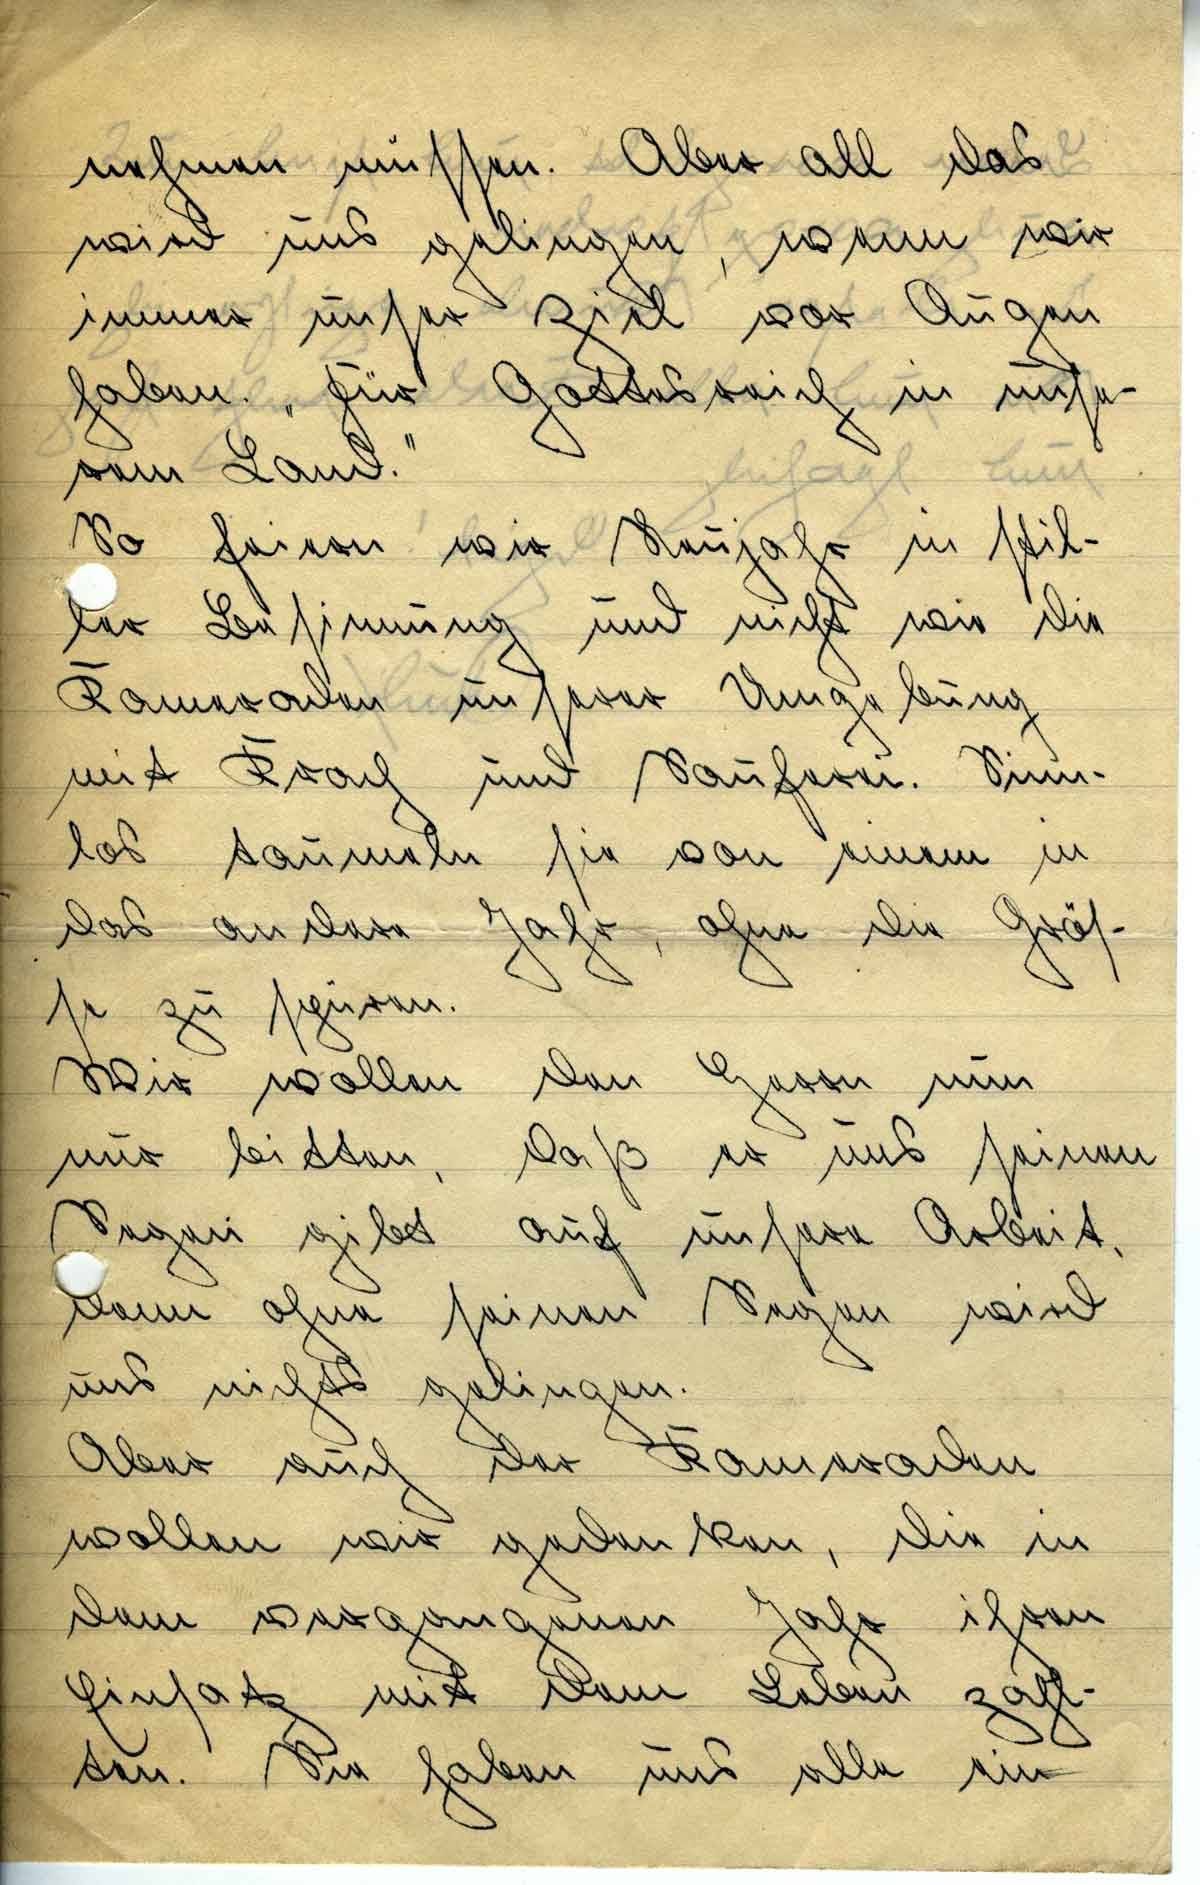 nehmen müssen. Aber all das
wird uns gelingen, wenn wir
immer unser Ziel vor Augen
haben. „Für Gottesreich in unse-
rem Land."
So feiern wir Neujahr in stil-
ler Besinnung und nicht wie die
Kameraden unserer Umgebung
mit Krach und Sauferei. Sinn-
los taumeln sie von einem in
das andere Jahr, ohne die Grös-
se zu spüren.
Wir wollen den Herrn nun
nur bitten, daß er uns seinen
Segen gibt auf unsere Arbeit,
denn ohne seinen Segen wird
uns nichts gelingen.
Aber auch der Kameraden
wollen wir gedenken, die in
dem vergangenen Jahr ihren
Einsatz mit dem Leben zahl-
ten. Sie haben uns alle ein